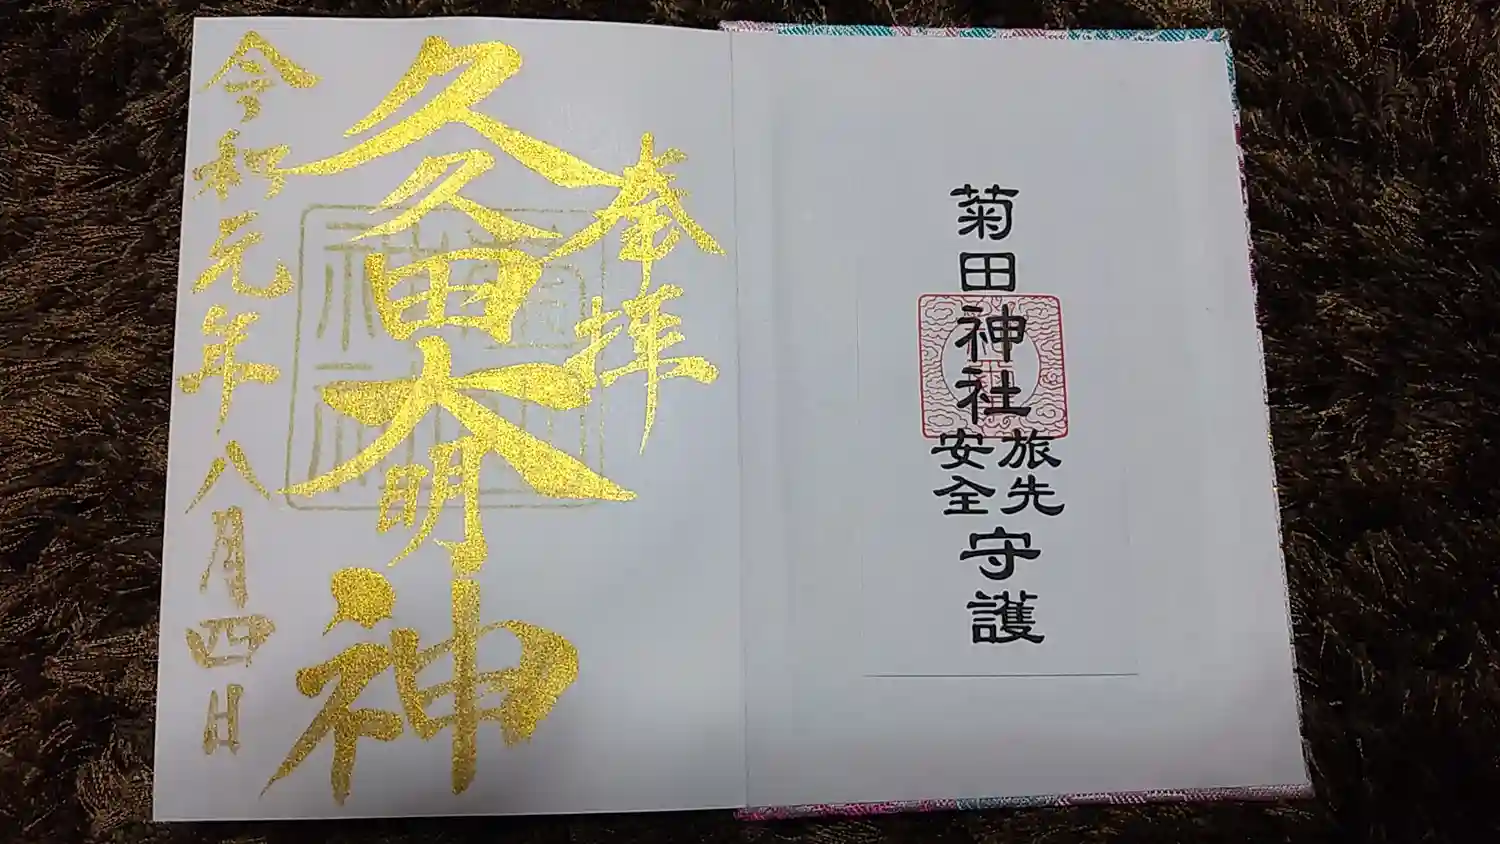 菊田神社
旅先
安全
守護
奉拝
久久田大明神
令和元年八月四日